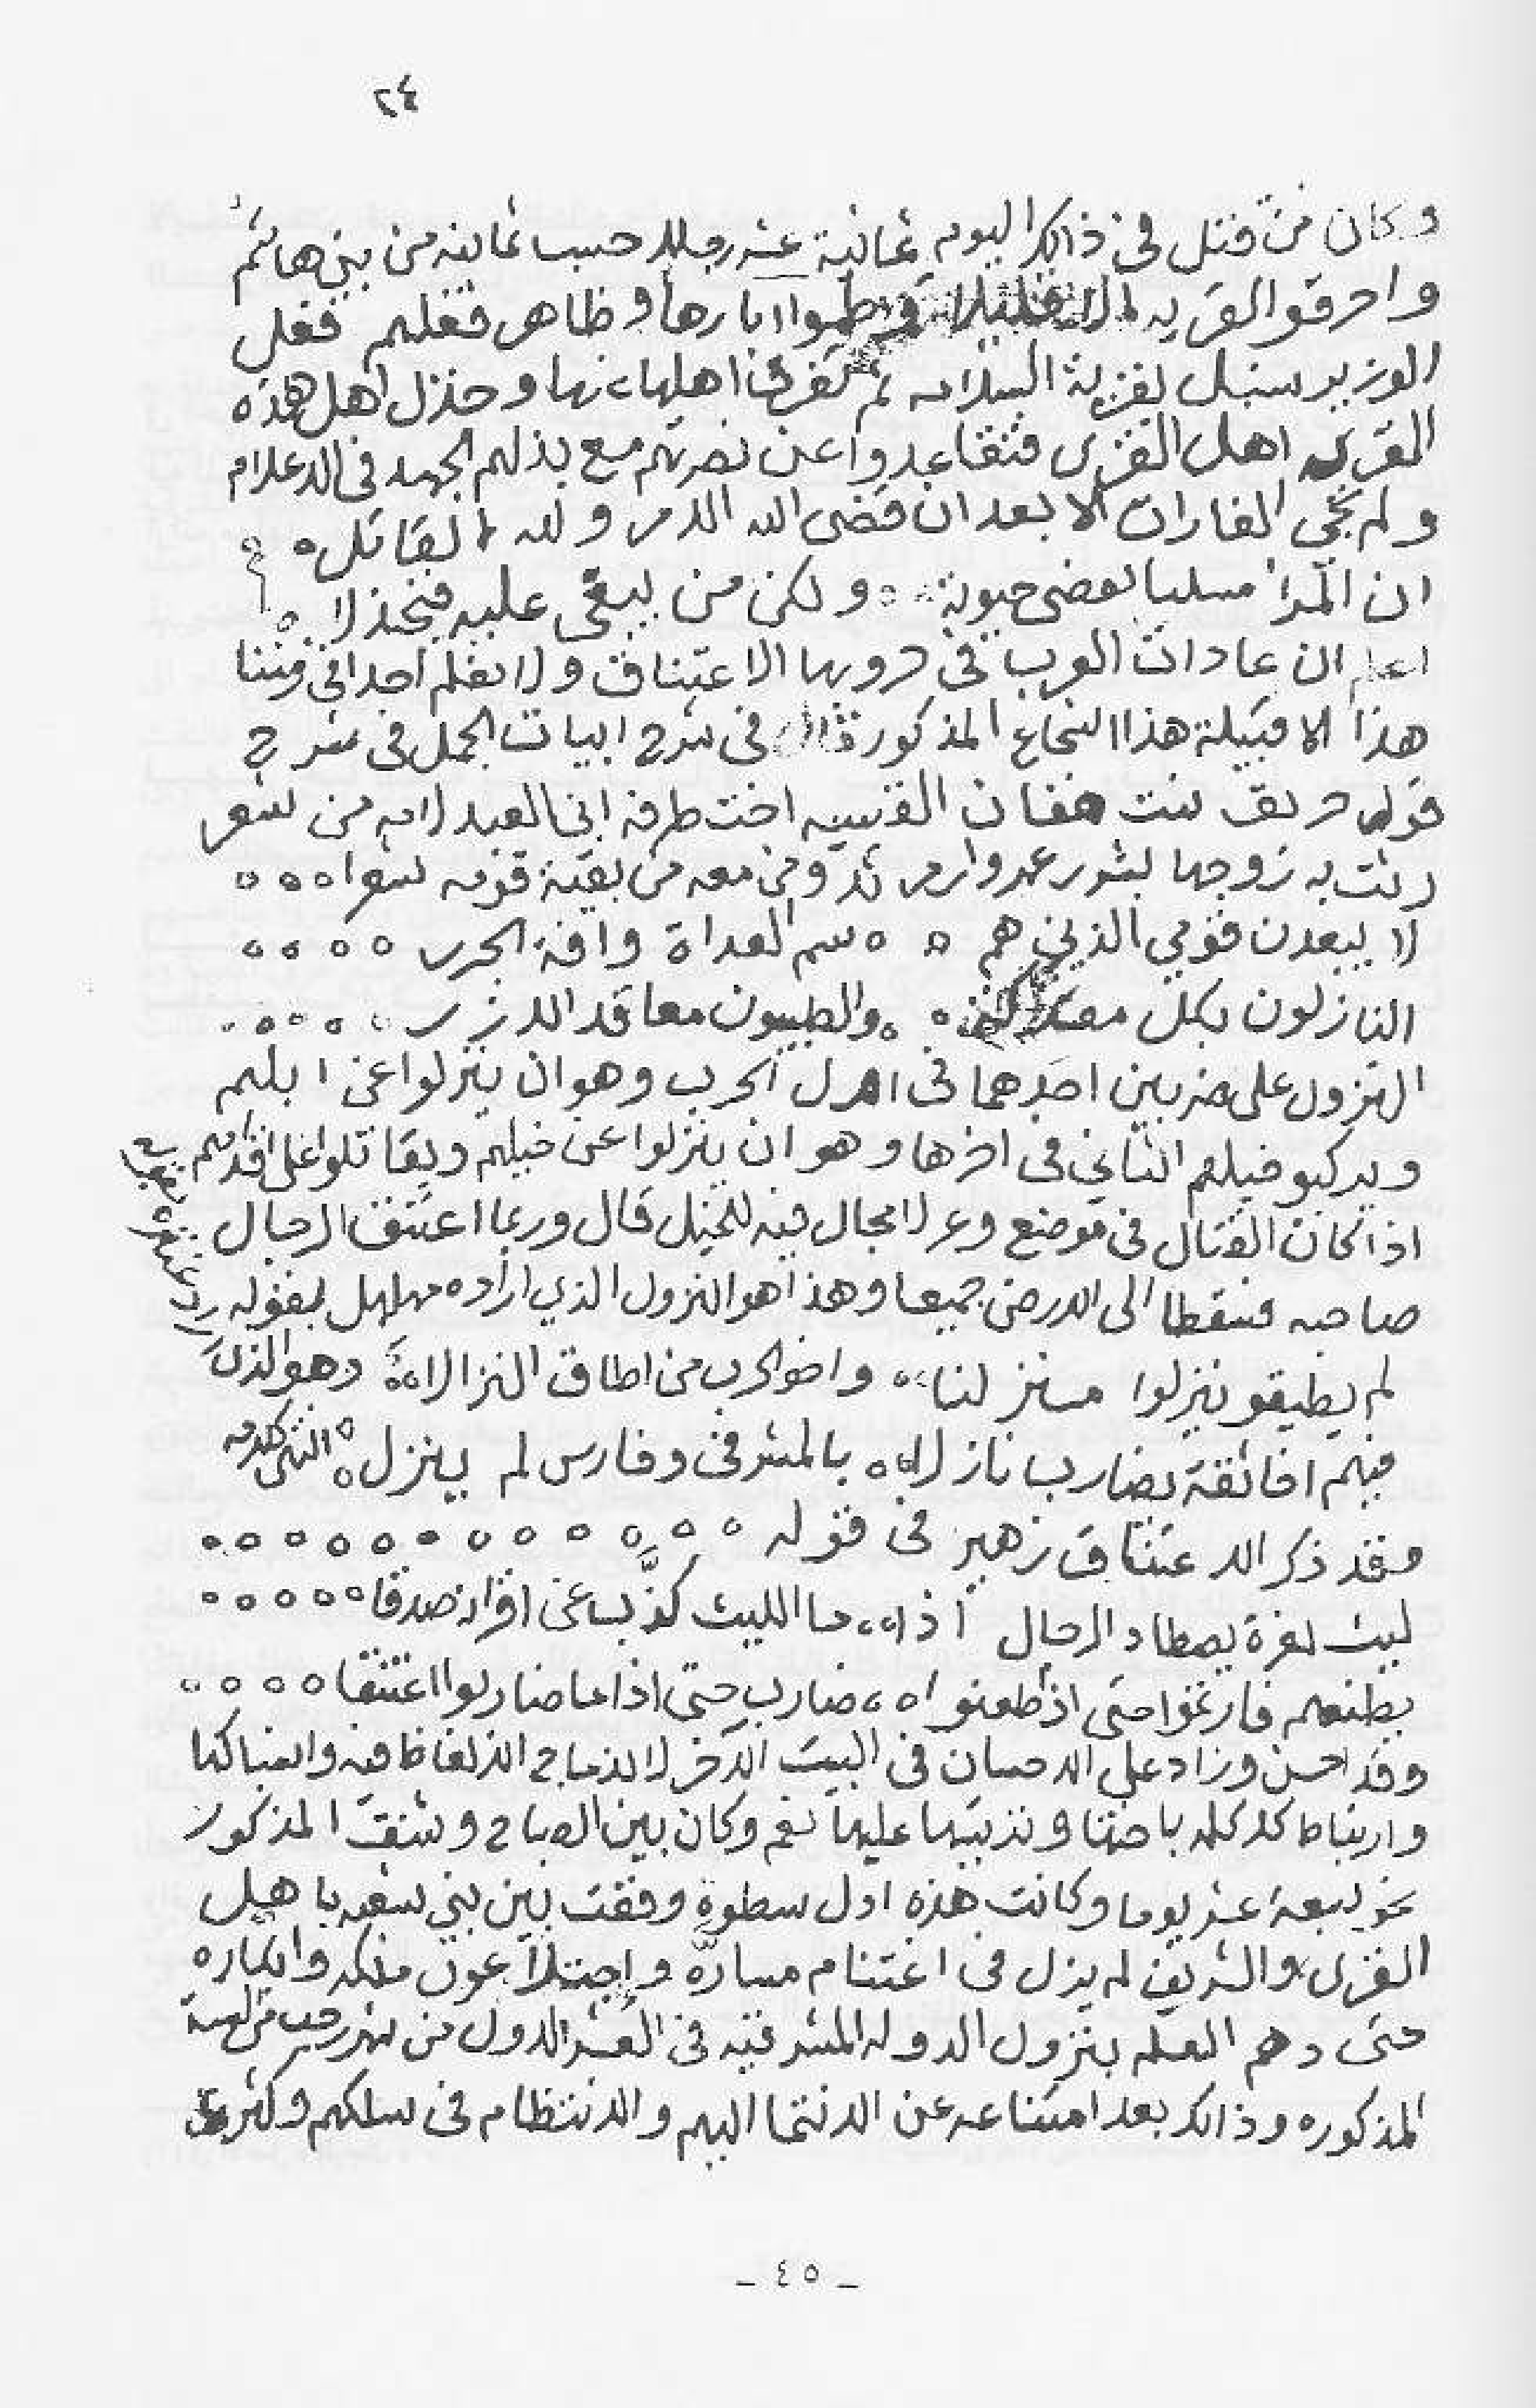 ٢٤
وكان من قتل في ذالك اليوم ثمانية عشر رجلا حسب ثمانيه من بني هاشم
واحرقو القريه الا قليلا وطموا ابارها وظاهر فعلهم فعل
الوزير سنبل لقرية السلامه ثم تفرق اهلها وخذل اهل هذه
القريه اهل القرى فتقاعدوا عن نصرتهم مع بذلهم الجهد في الاعلام
ولم تجي الغارات الا بعد ان قضى الله الامر ولله القائل
ان المرا ميتا بعضي حيوته ولكن من يبغى عليه فيخذلا
اعلم ان عادات العرب في حروبها الاعتناق ولا نعلم احدا في زمننا
هذا الا قبيلة هذا الشجاع المذكور قال في شرح ابيات الجمل في شرح
قوله خرنق بنت هفان القيسيه اخت طرفه ابن العبد لامه من شعر
رثت به زوجها بشر عمرو ابن مرثد ومن معه من بقية قومه شعرا
لا يبعدن قومي الذين هم سم العداة وافة الجزر
النازلون بكل معترك والطيبون معاقد الازر
النزول على ضربين احدهما في اول الحرب وهو ان ينزلوا عن ابلهم
ويركبو خيلهم الثاني في اخرها وهو ان ينزلوا عن خيلهم ويقاتلوا على اقدامهم
اذا كان القتال في موضع وعر لا مجال فيه للخيل قال وربما اعتنق الرجال
صاحبه فسقطا الى الارض جميعا وهذا هو النزول الذي اراده مهلهل بقوله
لم يطيقو ينزلوا فنزلنا واخو الحرب من اطاق النزالا وهو الذي
فيهم اخا ثقة يضارب نازلا بالمشرفي وفارس لم ينزل انتهى كلامه
وقد ذكر الاعتناق زهير في قوله
ليث بعزة يصطاد الرجال اذا ما الليث كذب عن اقرانه صدقا
يطعنهم فارتموا حتى اذ اطعنوا ضارب حتى اذا ما ضاربوا اعتنقا
وقد احسن وزاد على الاحسان في البيت الاخر لاندماج الالفاظ فيه
وارتباط كل كلمه باختها وترتيبها عليها نعم وكان بين الصباح وشنق المذكور
نحو سبعة عشر يوما وكانت هذه اول سطوة وقعت بين بني شعبه باهل
القرى والشريف لم يزل في اغتنام مساره واجتلا عون ملكه وابكاره
حتى دهم العلم بنزول الدوله المشرقيه في العشر الاول من شهر رجب من السنة
المذكوره وذالك بعد امتناعه عن الانتما اليهم والانتظام في سلكهم وكثر
- ٤٥ -